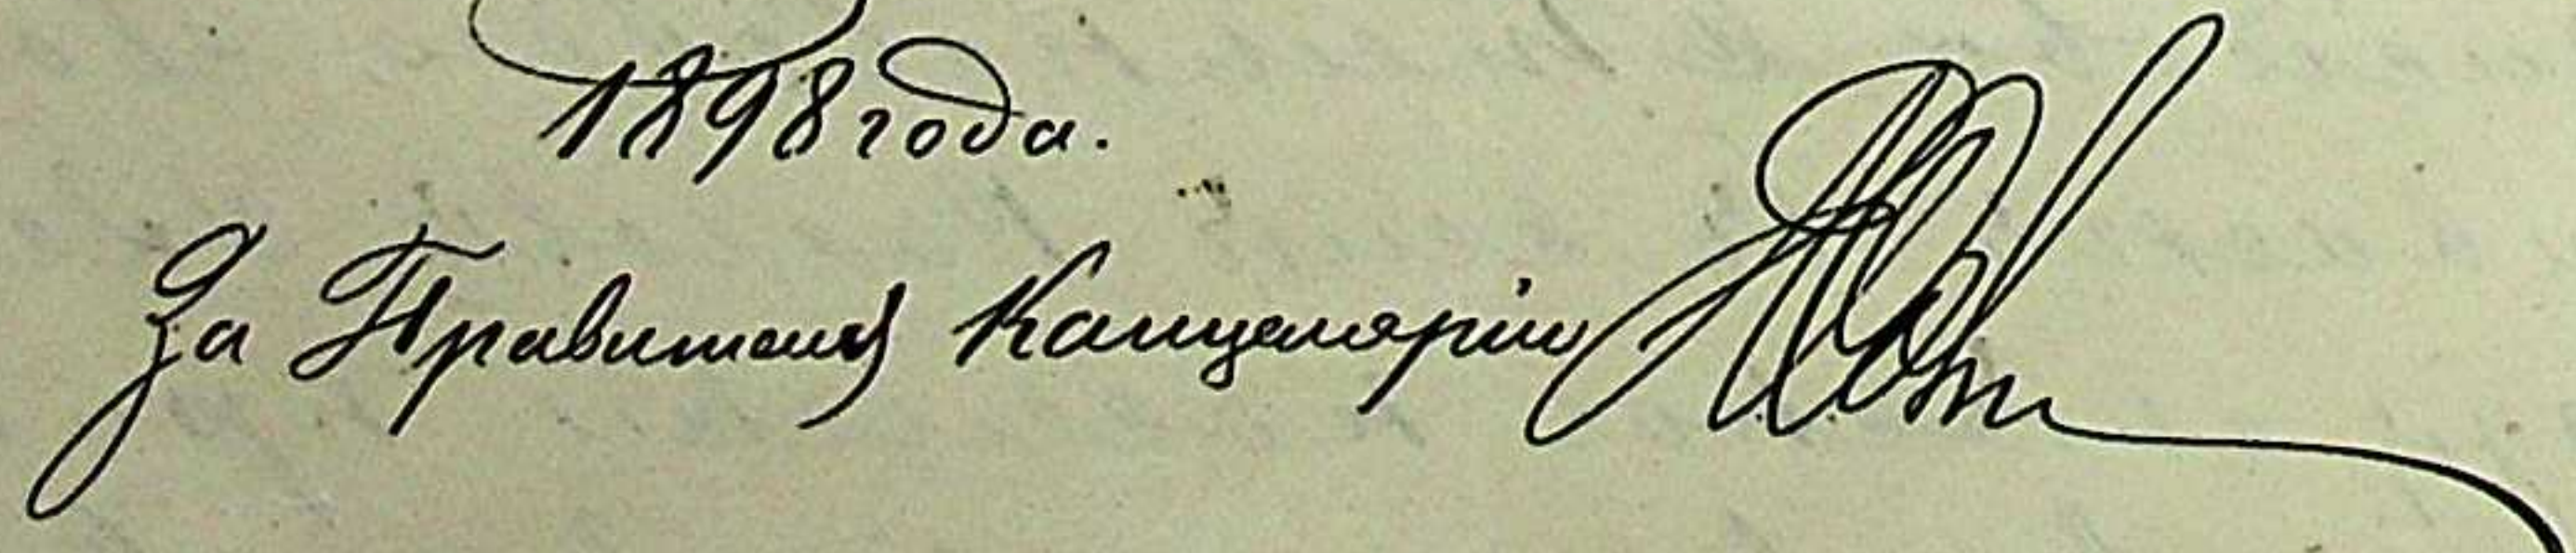 1898 года.
За Правителя Канцеляріи